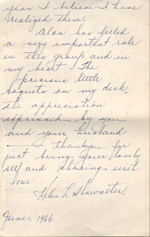 year I believe I have
realized them.
Alan has filled
a very important role
in this group and in
my heart. The
precious little
on my desk,
the appreciation
expressed by you
and your husband
I thank you for
just being your lovely
self and sharing such
love!
Helen L.
June, 1966